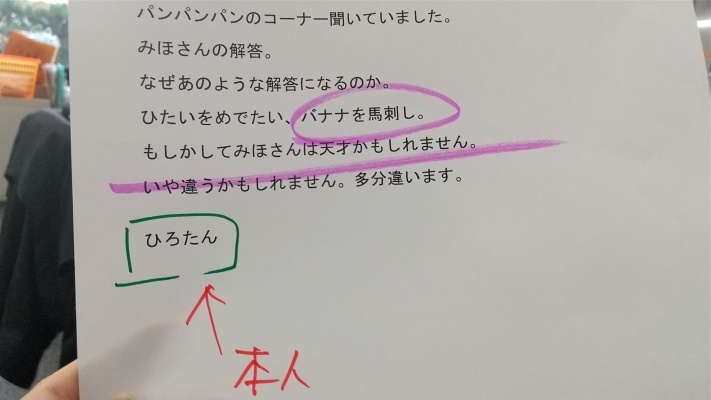 パンパンパンのコーナー聞いていました。
みほさんの解答。
なぜあのような解答になるのか。
ひたいをめでたい、バナナを馬刺し。
もしかしてみほさんは天才かもしれません。
いや違うかもしれません。多分違います。
ひろたん
本人